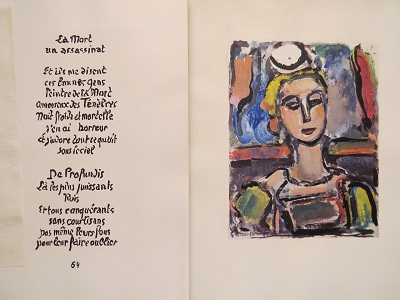 La Mort
un assassinat
Et ils me disent
ces bonnes gens
Peintre de la Mort
amoureux des Ténèbres
Nuit froide et mortelle
J'en ai horreur
et j'adore tout ce qui vit
sous le ciel
De Profundis
là les plus puissants
Rois
Et tous conquérants
sans courtisans
pas même leurs fous
pour leur faire oublier
64